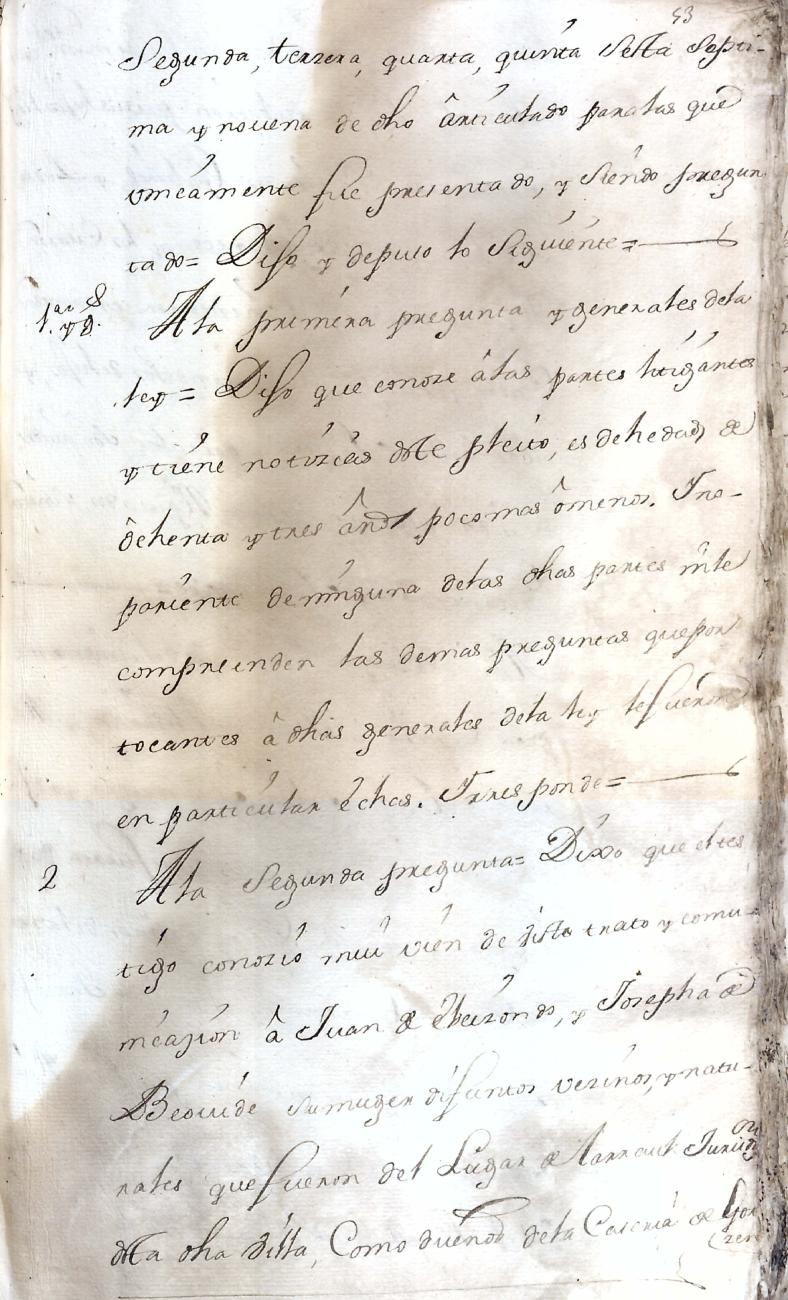 53
Segunda, terzera, quarta, quinta sesta septi-
ma y novena de dho articulado paralas que
unicamente fue presentado, y siendo pregun
tado= Diso y depuso lo siguiente=
1ª y g.s Ala primera pregunta y generales dela
ley = Diso que conoze âlas partes litigantes
y tiene notizias deste pleito, es dehedad de
ôchenta y tres años pocomas ômenos. Ino-
pariente deninguna delas dhas partes nile
compreenden las demas preguntas quepor
tocantes â dhas generales dela ley lefueron
en particular êchas. Irresponde=
2 Ala segunda pregunta= Dixo que eltes
tigo conozió mui vien de vista trato y comu-
nicazion â Juan de, y Josepha de
Beovide sumuger difuntos vezinos, y natu-
rales quefueron del Lugar de
desta dha villa, Como dueños dela Caseria de